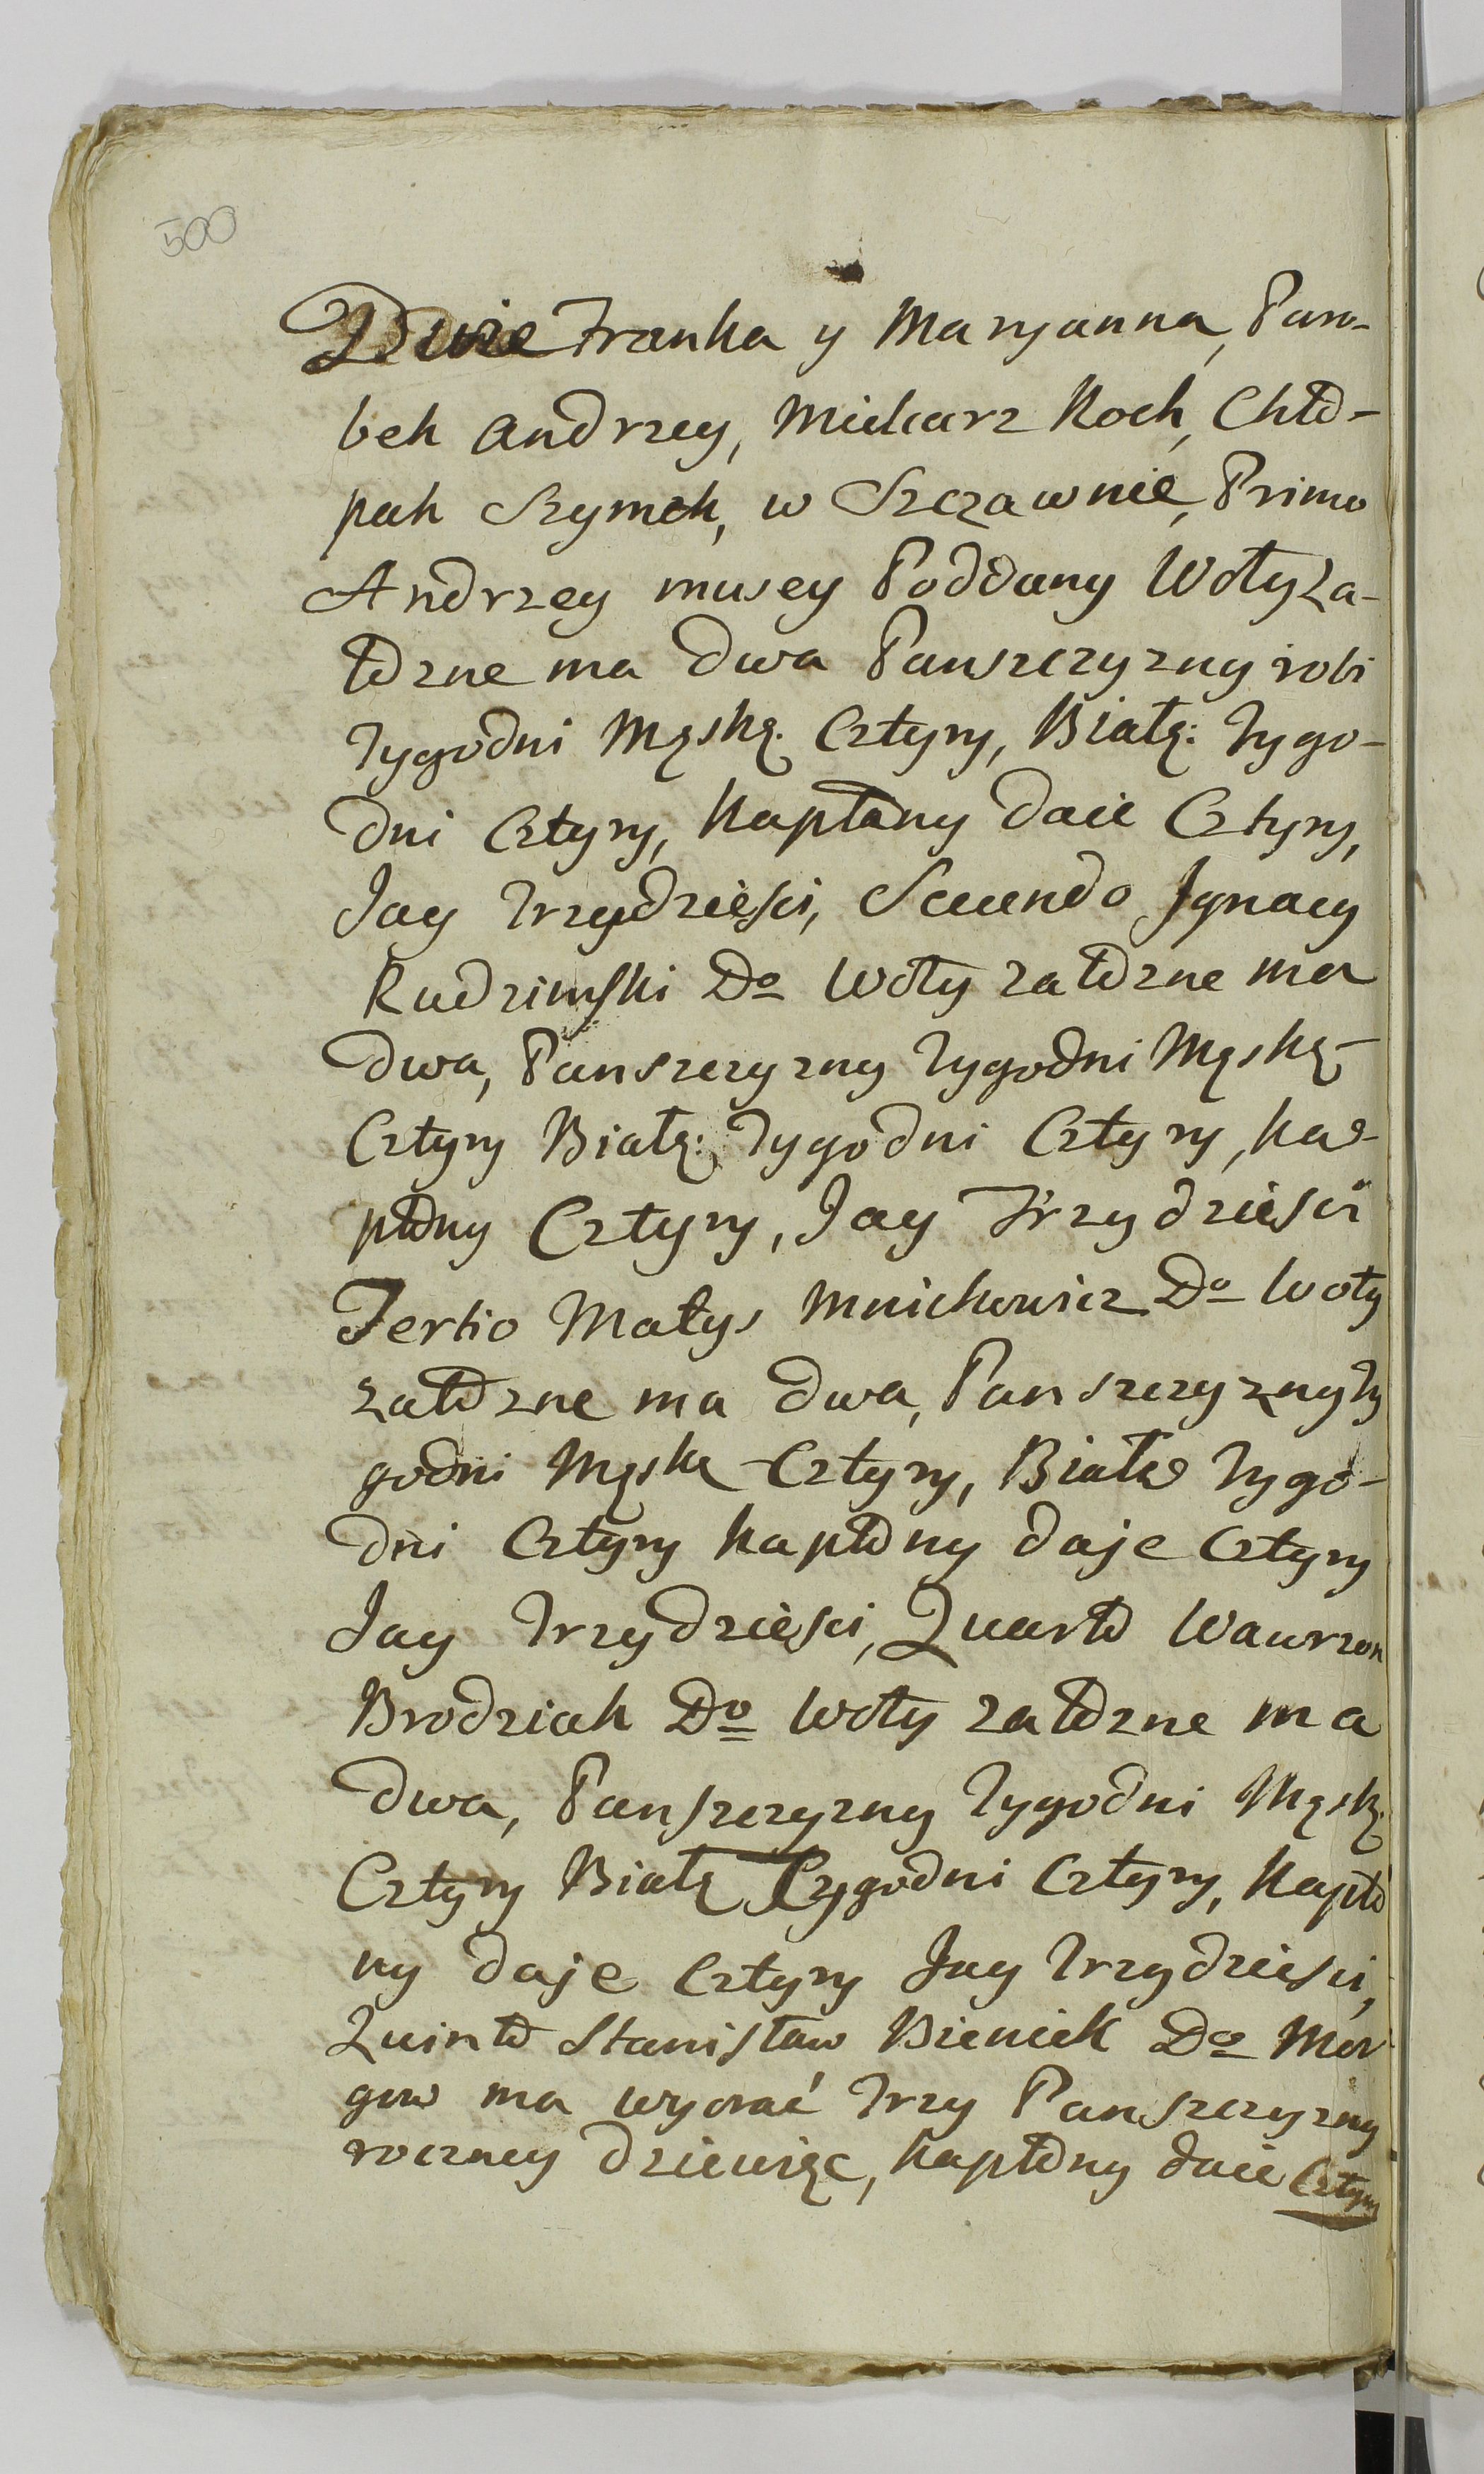 500
Dwie Franka y Maryanna, Paro-
bek Andrzey, Mielcarz Roch, Chło-
pak Szymek, w Szczawnie, Primo
Andrzey musey Poddany Woły za-
łożne ma dwa Panszczyzny robi
Tygodni Męską. Cztyry, Białą: Tygo-
dni Cztyry, Kapłony daie Cztyry,
Jay Trzydzieści, Secundo Jgnacy
Rudzinski Do Woły założne ma
dwa, Panszczyzny Tygodni Męską
Cztyry Białą: Tygodni Cztyry, Ka-
płony Cztyry, Jay Trzydzieści
Tertio Matys Mnichowicz Do Woły
założne ma dwa, Panszczyzny Ty
godni Męską Cztyry, Białą Tygo-
dni Cztyry Kapłony daje Cztyry
Jay Trzydzieści, Quarto Wawrzon
Brodziak Do Woły założne ma
dwa, Panszczyzny Tygodni Męską.
Cztyry Białą Tygodni Cztyry, Kapło
ny daje Cztyry Jay Trzydzieści,
Quinto Stanisław Bieniek Do Mor
gow ma wyorać Trzy Panszczyzny
roczney dziewięc, Kapłony daie Cztyry